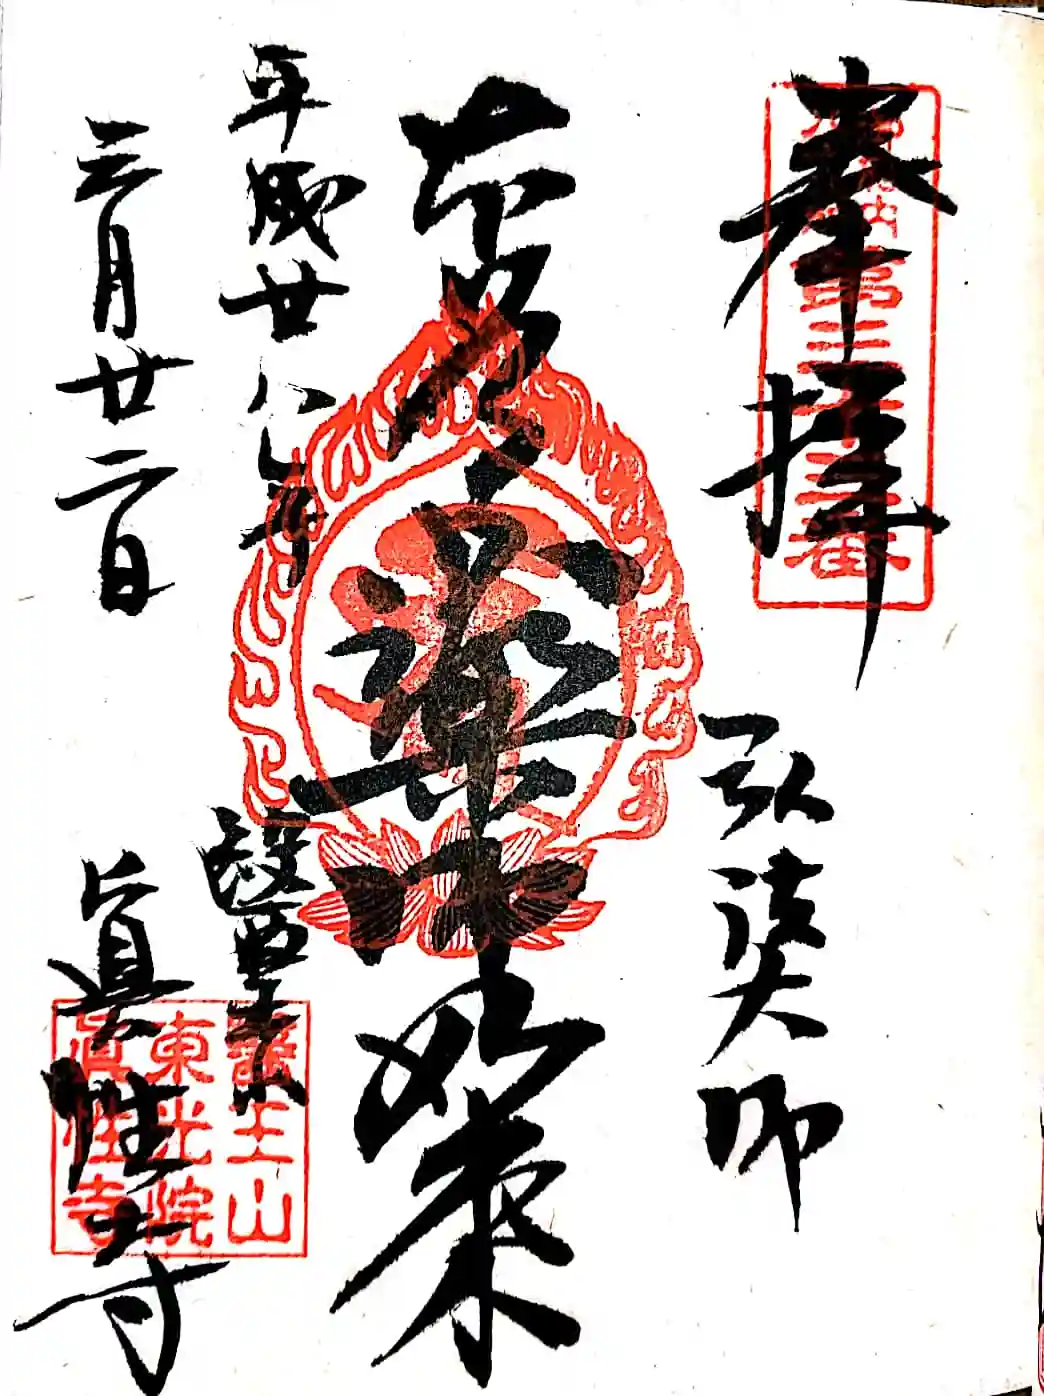 奉拝
御府内第三十三番
弘法大師
本尊薬師如来
平成廿八年
三月廿二日
眞性寺
醫王山
東光院
眞性寺